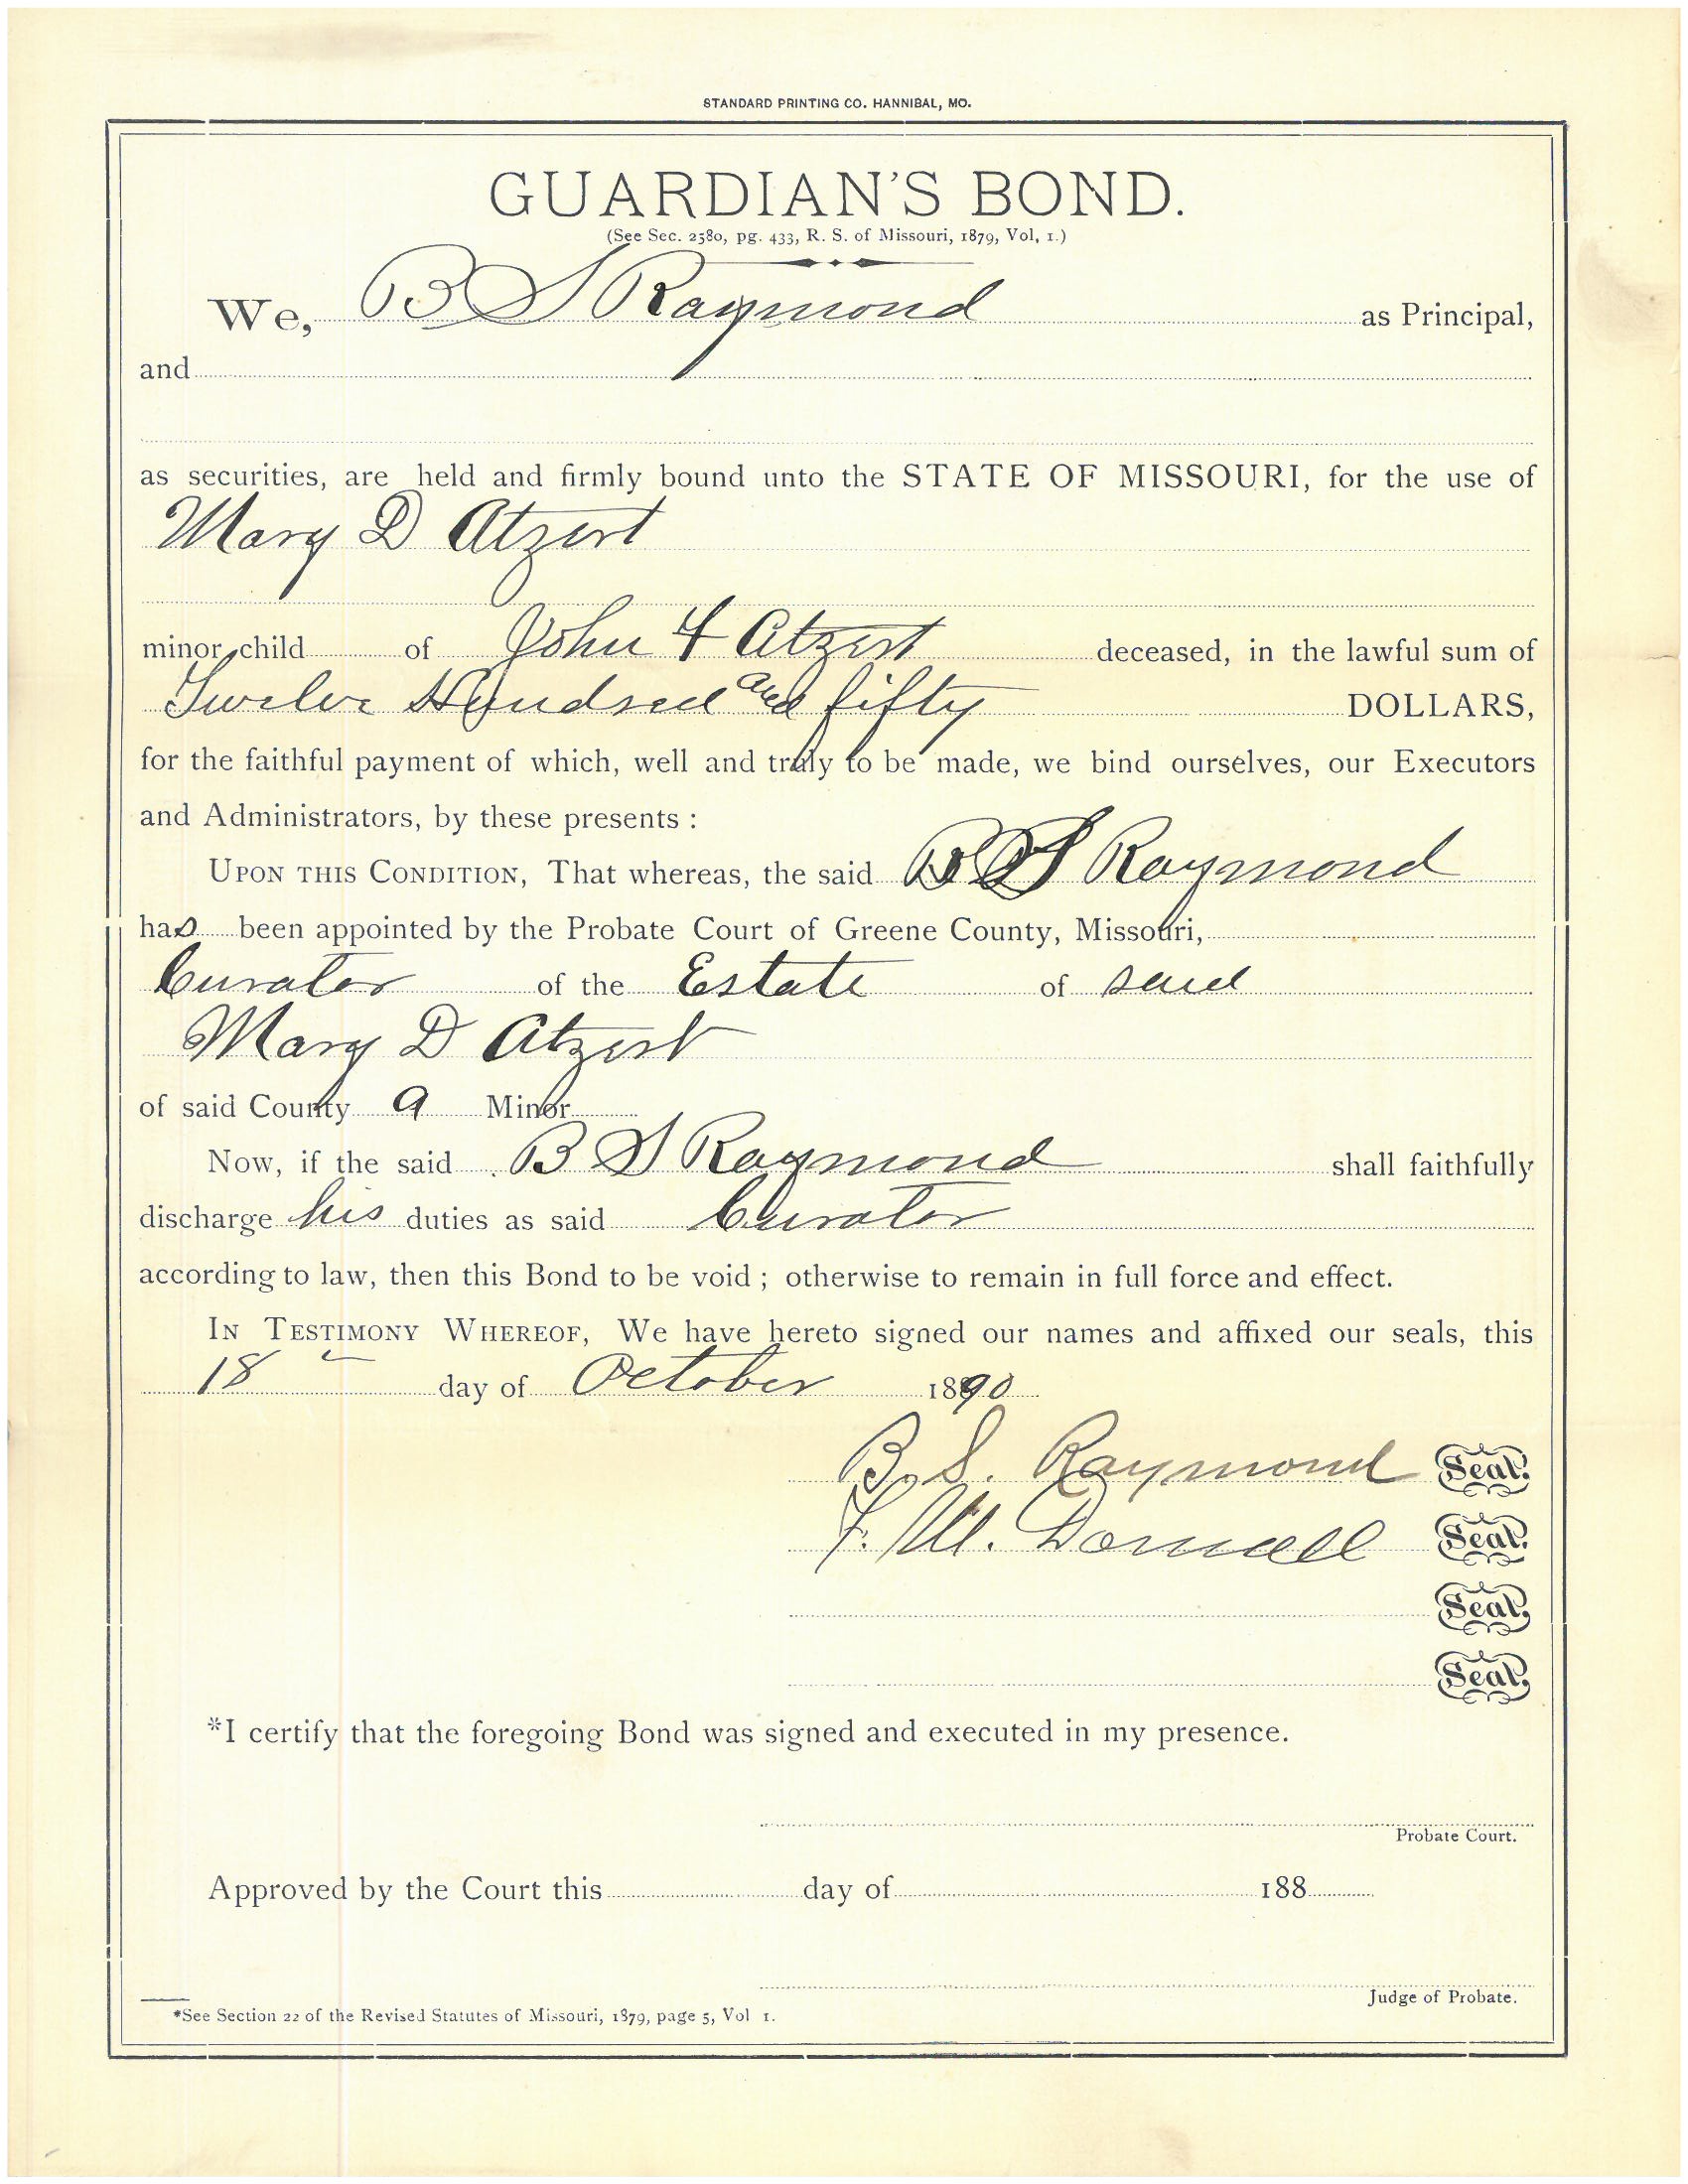 STANDARD PRINTING CO. HANNIBAL, MO.
GUARDIAN'S BOND.
(See Sec. 2580, pg. 433, R. S. of Missouri, 1879, Vol, 1.)
We, B S Raymond as Principal,
and
as securities, are held and firmly bound unto the STATE OF MISSOURI, for the use of
Mary D Atzert
minor child of John F Atzert deceased, in the lawful sum of
Twelve Hundred and fifty DOLLARS,
for the faithful payment of which, well and truly to be made, we bind ourselves, our Executors
and Administrators, by these presents :
UPON THIS CONDITION, That whereas, the said B S Raymond
has been appointed by the Probate Court of Greene County, Missouri,
Curator of the Estate of said
Mary D Atzert
of said County a Minor
Now, if the said B S Raymond shall faithfully
discharge his duties as said Curator
according to law, then this Bond to be void ; otherwise to remain in full force and effect.
IN TESTIMONY WHEREOF, We have hereto signed our names and affixed our seals, this
18 day of October 1890
B. S. Raymond Seal.
F. M. Donnell Seal.
Seal.
Seal.
*I certify that the foregoing Bond was signed and executed in my presence.
Probate Court.
Approved by the Court this day of 188
Judge of Probate.
*See Section 22 of the Revised Statutes of Missouri, 1879, page 5, Vol 1.